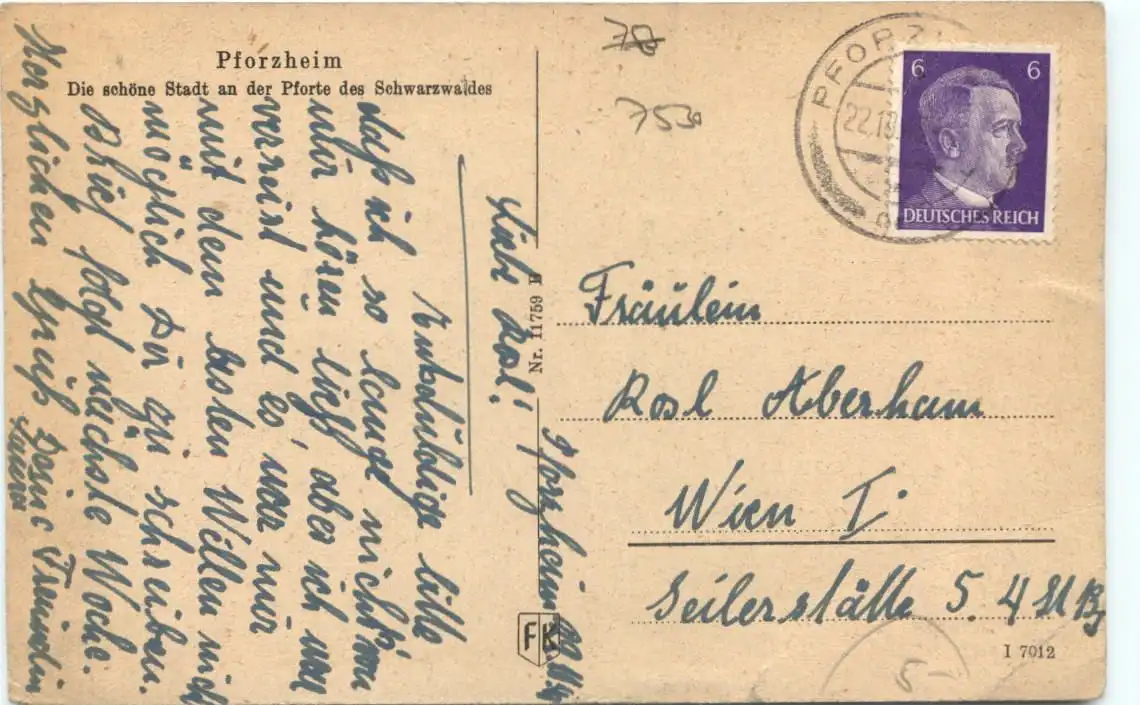 Pforzheim
Die schöne Stadt an der Pforte des Schwarzwaldes
Pforzheim
Liebe Rosl!
Entschuldige bitte
daß ich so lange nichts von
mir hören ließ, aber ich war
verreist und es war mir
mit dem besten Willen nicht
möglich Dir zu schreiben.
Brief folgt nächste Woche.
Herzlichen Gruß Deine Freundin
Nr. 11759 B
FK
78
753
PFORZ
22.10.
6 6
DEUTSCHES REICH
Fräulein
Rosl Aberham
Wien I.
Seilerstätte 5. 4
I 7012
5-